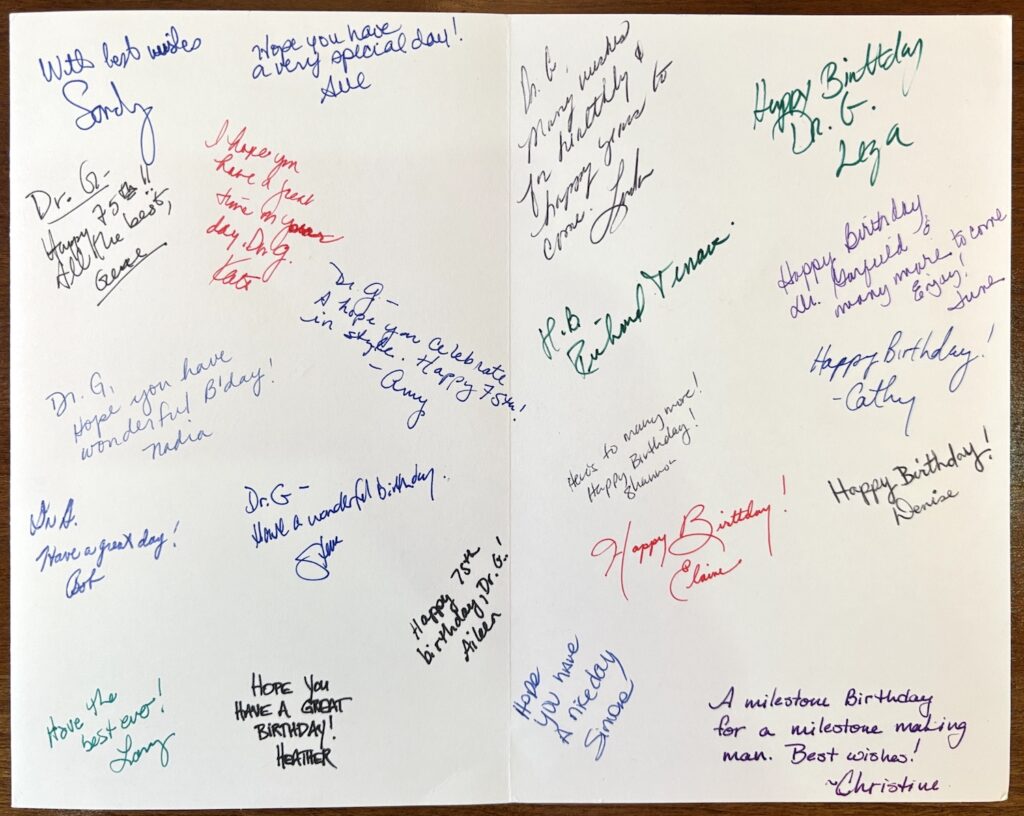 With best wishes
Sandy
Hope you have
a very special day!
Sue
Dr. G-
Happy 75th!!
All the best,
I hope you
have a great
time on your
day, Dr. G.
Kate
Dr G-
I hope you celebrate
in style. Happy 75th!
- Amy
Dr. G,
Hope you have
wonderful B'day!
Nadia
Have a great day!
Bob
Dr. G-
Have a wonderful birthday.
Steve
Happy 75th
birthday, Dr. G.!
Aileen
Have the
best ever!
HOPE YOU
HAVE A GREAT
BIRTHDAY!
HEATHER
Dr. G,
Many wishes
for healthy &
happy years to
come. Linda
Happy Birthday
Dr. G.
Leza
H.B -
Richard
Happy Birthday
Dr. Garfield &
many more to come
Enjoy!
June
Happy Birthday!
-Cathy
Here's to many more!
Happy Birthday!
Shannon
Happy Birthday!
Denise
Happy Birthday!
Elaine
Hope
you have
A nice day
Simone!
A milestone Birthday
for a milestone making
man. Best wishes!
~Christine